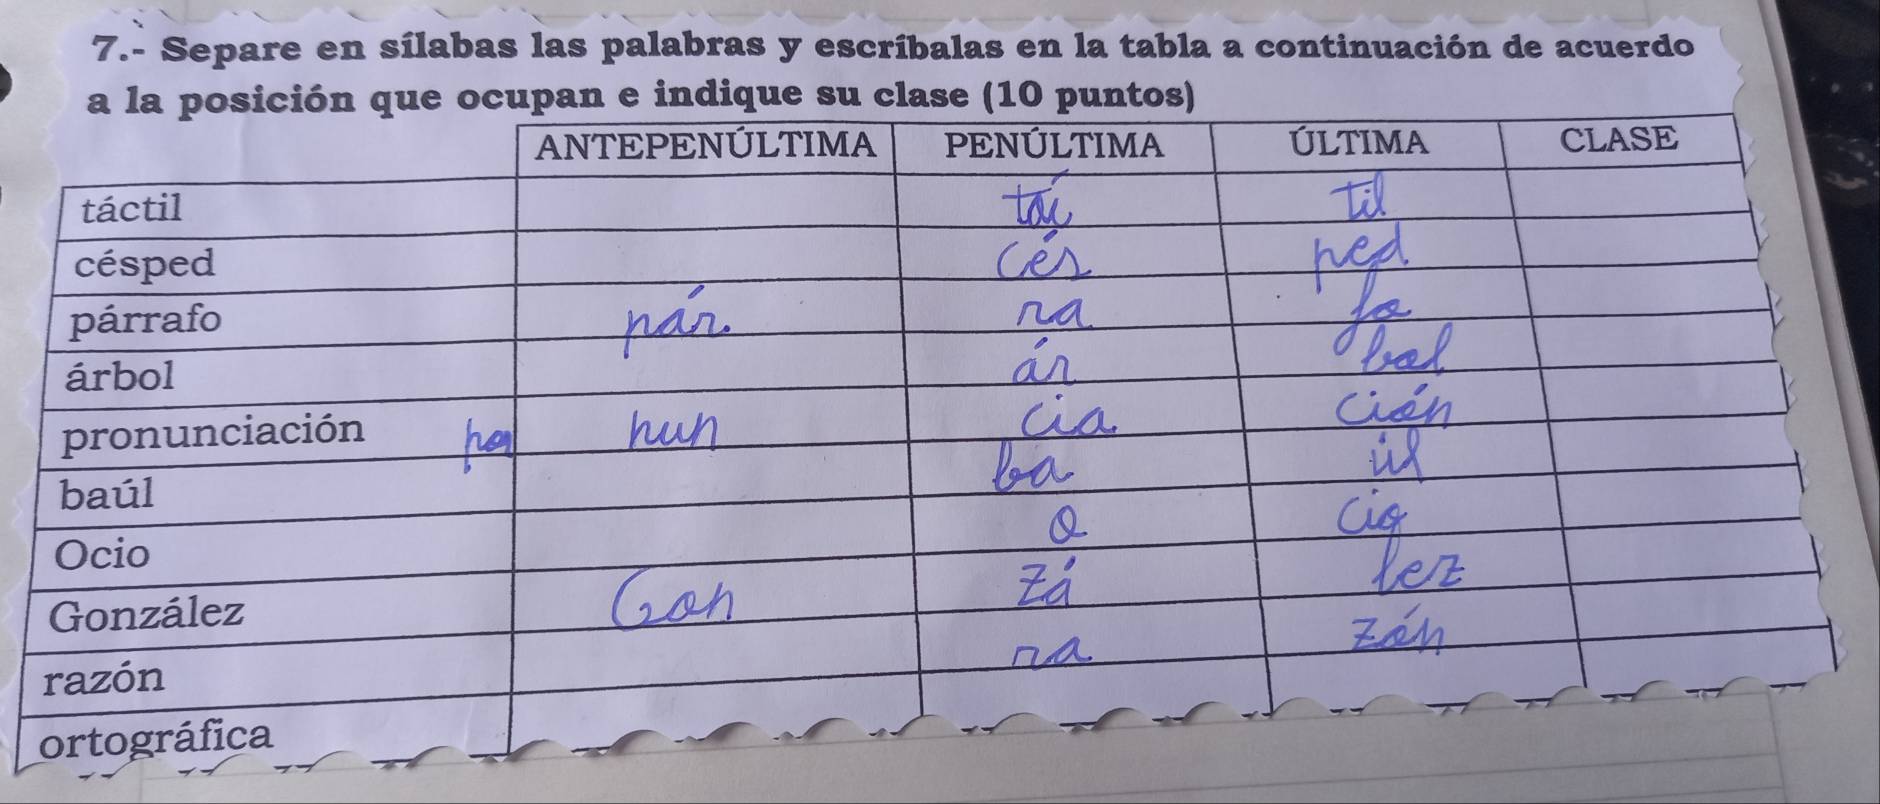 7.- Separe en sílabas las palabras y escríbalas en la tabla a continuación de acuerdo
a la posición que ocupan e indique su clase (10 puntos)
ANTEPENÚLTIMA PENÚLTIMA ÚLTIMA CLASE
táctil tác til
césped cés ped
párrafo pár ra fo
árbol ár bol
pronunciación nun cia ción
baúl ba úl
Ocio O cio
González Gon zá lez
razón ra zón
ortográfica